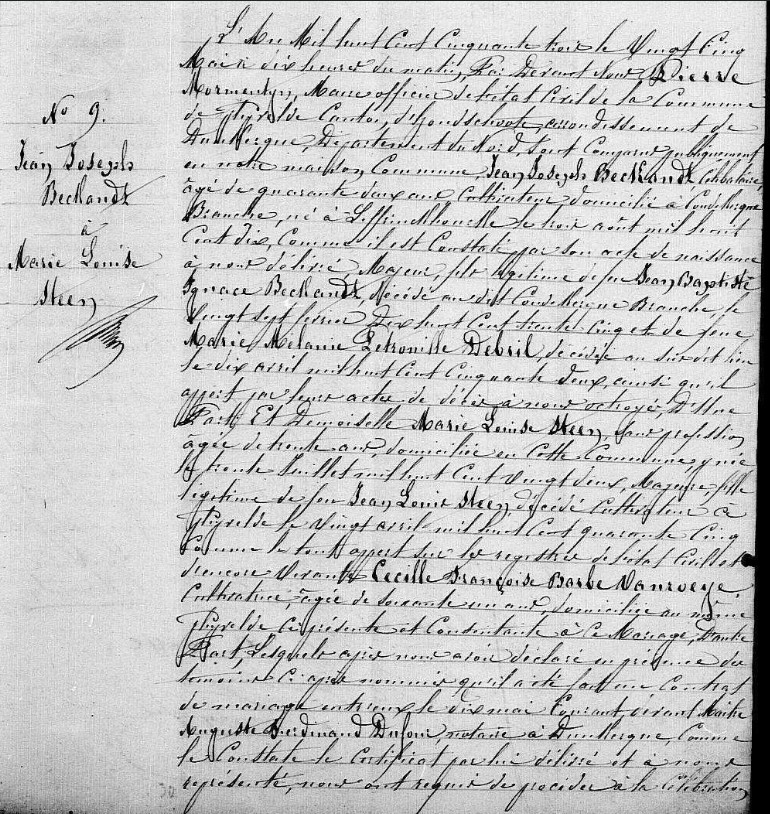 N° 9.
Jean Joseph
Becklandt
à
Marie Louise
Steen
L'An Mil huit Cent Cinquante trois le Vingt Cinq
Mai à dix heures du matin, Par Devant Nous Pierre
Mormentyn, Maire officier de l'état Civil de la Commune
de Ghyvelde Canton d'hondschoote, arrondissement de
Dunkerque, Département du Nord, sont Comparus publiquement
en notre maison Commune Jean Joseph Becklandt, Célibataire,
âgé de quarante deux ans Cultivateur, domicilié à Coudekerque
Branche, né à Leffrinckhoucke le trois août mil huit
Cent dix, Comme il est Constaté par son acte de naissance
à nous délivré, Majeur, fils légitime de feu Jean Baptiste
Ignace Becklandt, décédé au dit Coudekerque Branche, le
Vingt sept février Dix huit Cent trente Cinq et de feue
Marie Mélanie Petronille Debril, décédée au susdit lieu
le dix avril mil huit Cent Cinquante deux, ainsi qu'il
appert par leurs actes de décès à nous octroyé, D'Une
Part; Et Demoiselle Marie Louise Steen, sans profession
âgée de trente ans, domiciliée en Cette Commune, y née
le trente Juillet mil huit Cent Vingt deux, Majeure, fille
légitime de feu Jean Louis Steen décédé Cultivateur à
Ghyvelde le Vingt avril mil huit Cent quarante Cinq
Comme le tout appert sur les registres de l'état Civil et
d'encore Vivante Cecille Françoise Barbe Vanroeye,
Cultivatrice, âgée de soixante un ans, domiciliée au même
Ghyvelde Ci présente et Consentante à Ce Mariage, D'autre
Part, Lesquels après nous avoir déclaré en présence des
témoins Ci après nommés qu'il a été fait un Contrat
de mariage entr'eux le dix mai Courant, devant Maître
Auguste Ferdinand Dufour notaire à Dunkerque, Comme
le Constate le Certificat par lui délivré et à nous
représenté, nous ont requis de procéder à la Célébration